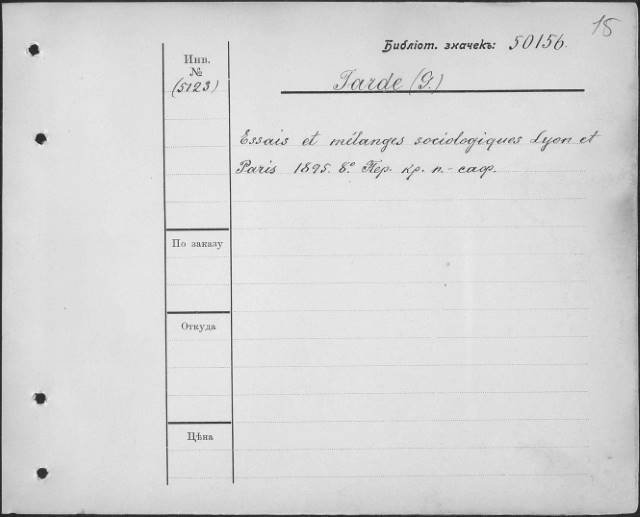 18
Библіот. значекъ: 50156.
Инв.
№
(5123)
Tarde (G.)
Essais et mélanges sociologiques Lyon et
Paris 1895. 8° Пер. кр. п.-саф.
По заказу
Откуда
Цѣна